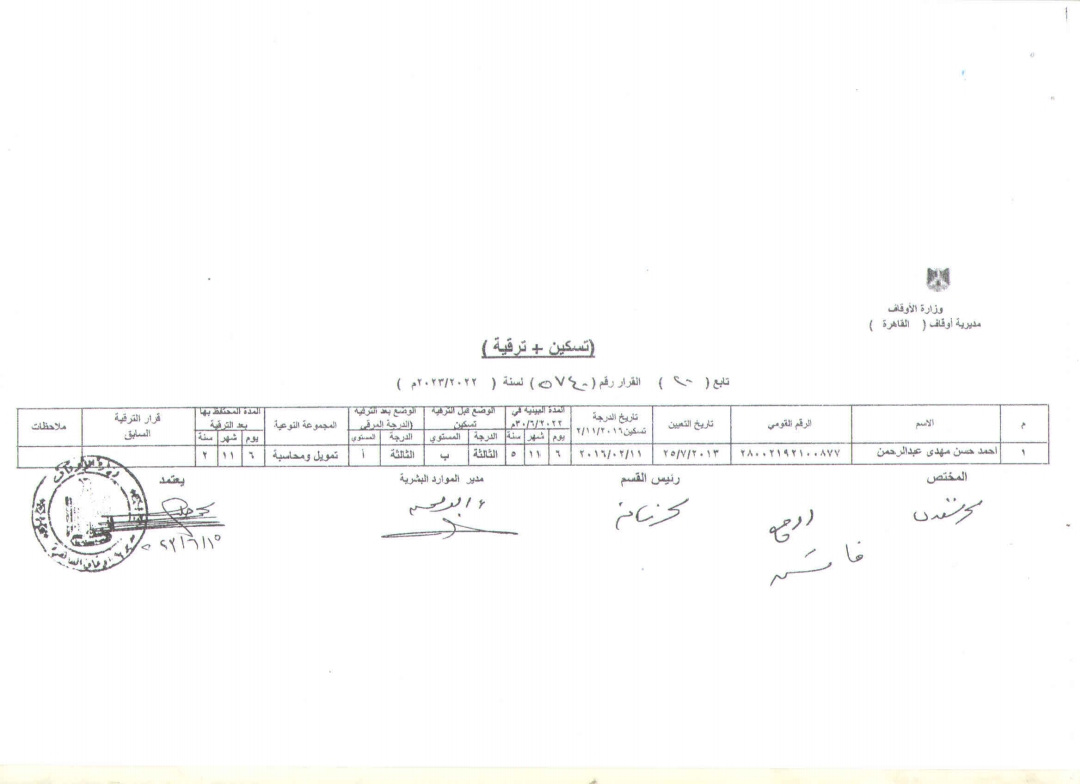 وزارة الأوقاف
مديرية أوقاف ( القاهرة )
(تسكين + ترقية )
تابع ( ٢٠ ) القرار رقم ( ٥٧٤٠ ) لسنة ( ٢٠٢٣/٢٠٢٢م )
م الاسم الرقم القومي تاريخ التعيين تاريخ الدرجة تسكين٢/١١/٢٠١٦ المدة البينية في ٣٠/٦/٢٠٢٢م الوضع قبل الترقية تسكين الوضع بعد الترقية (الدرجة المرقي المجموعة النوعية المدة المحتفظ بها بعد الترقية قرار الترقية السابق ملاحظات
يوم شهر سنة الدرجة المستوي الدرجة المستوي يوم شهر سنة
١ احمد حسن مهدى عبدالرحمن ٢٨٠٠٢١٩٢١٠٠٨٧٧ ٢٥/٧/٢٠١٣ ٢٠١٦/٠٢/١١ ٦ ١١ ٥ الثالثة ب الثالثة أ تمويل ومحاسبة ٦ ١١ ٢
المختص رئيس القسم مدير الموارد البشرية يعتمد